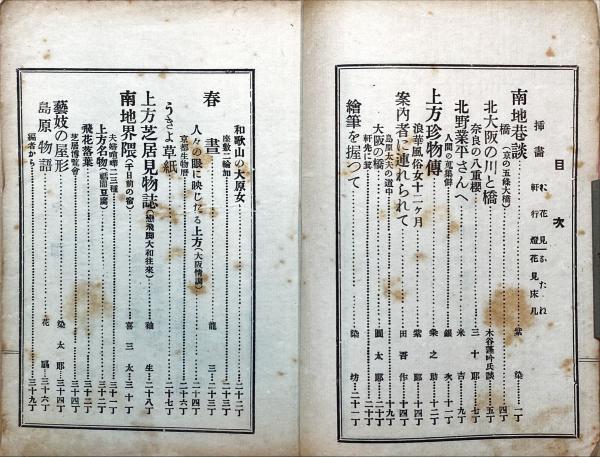 目次
挿畫
花見かたれ
軒行燈
花見床几
南地巷談 紫染 一丁
橋(京の五條大橋) 四丁
北大阪の川と橋 木谷蓬吟氏談 五丁
奈良の八重櫻 三十郎 七丁
北野業平さんへ 米吉 九丁
人間の蒐集癖 銀次 十一丁
上方珍物傳 粂之助 十二丁
浪華風俗女十二ケ月 紫郎 十四丁
案内者に連れられて 田吾作 十四丁
島原太夫の道中 十九丁
大阪の橋 圓太郎 二十丁
軒先に箕 二十丁
繪筆を握つて 染坊 二十一丁
和歌山の大原女 二十二丁
座敷二輪加 二十三丁
春晝 龍 二十三丁
人々の眼に映じたる上方(大阪情調) 二十四丁
京都生物暦 二十六丁
うきよ草紙 二十七丁
上方芝居見物誌(戀飛脚大和往來) 釉生 二十八丁
南地界隈(千日前の宿) 喜三太 三十丁
夫婦喧嘩二三種 三十一丁
上方名物(祇園豆腐) 三十二丁
飛花落葉 三十二丁
芝居博覧會 三十四丁
藝妓の屋形 染太郎 三十四丁
島原物語 花 三十六丁
編者から 三十九丁